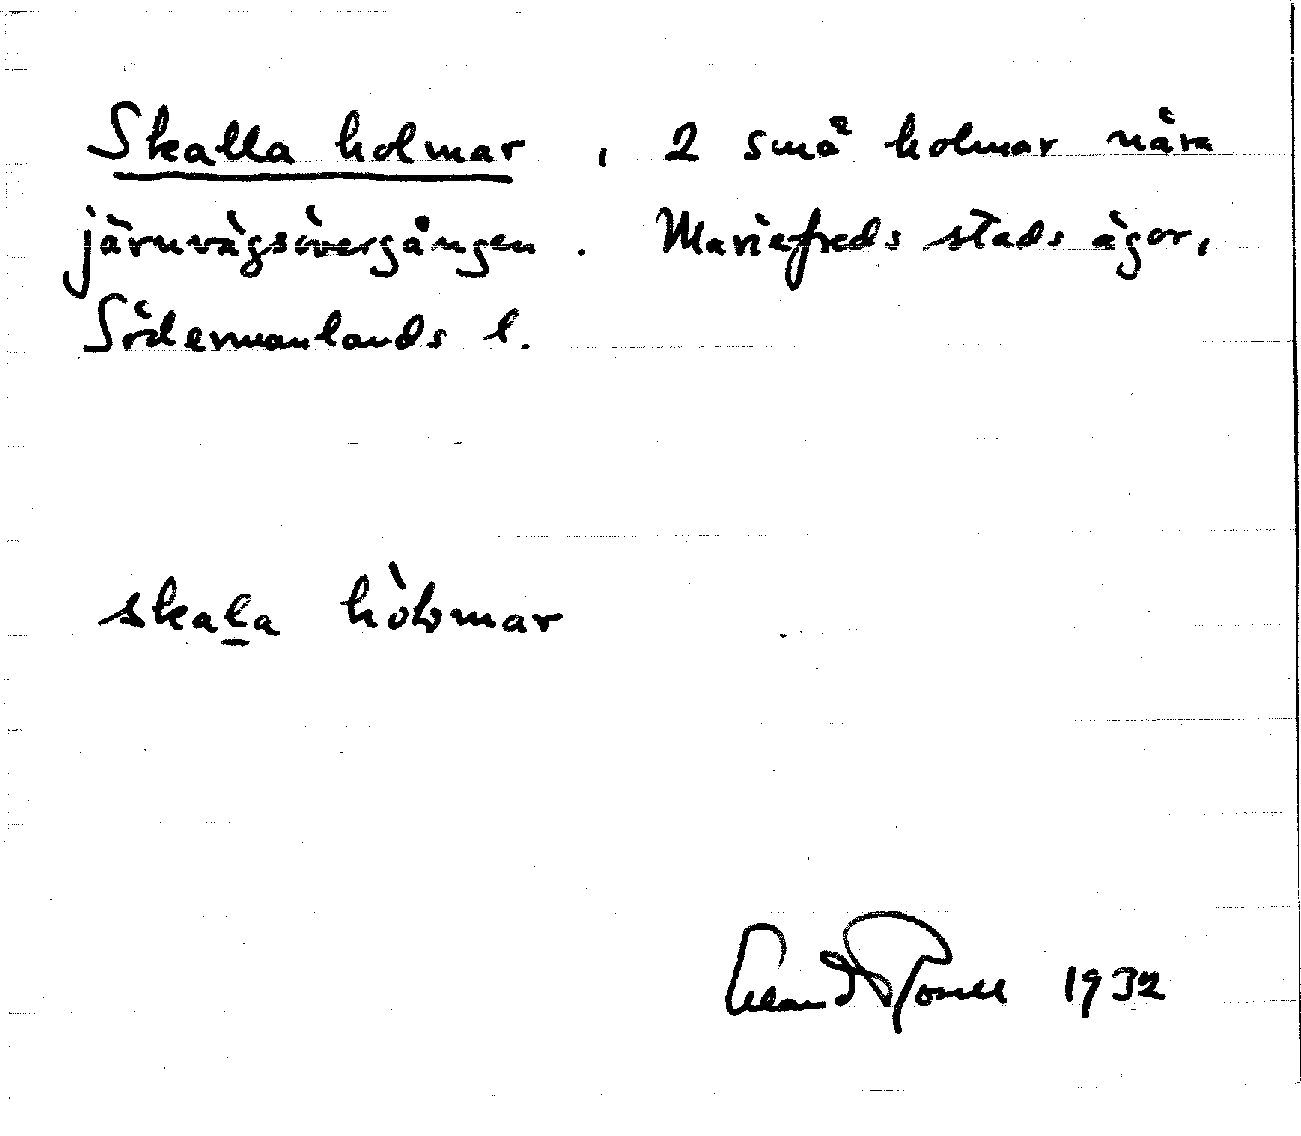 Skalla holmar, 2 små holmar nära
järnvägsövergången. Mariefreds stads ägor,
Södermanlands l.
skala hòlmar
1932